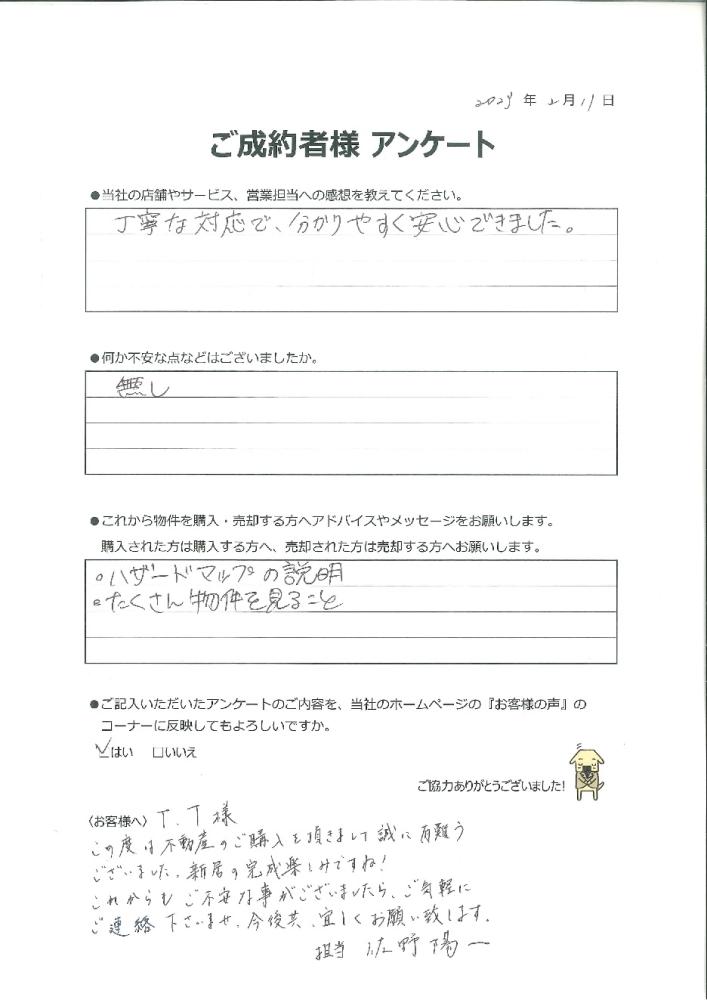 年 2月11日
ご成約者様 アンケート
●当社の店舗やサービス、営業担当への感想を教えてください。
丁寧な対応で、分かりやすく安心できました。
●何か不安な点などはございましたか。
無し
●これから物件を購入・売却する方へアドバイスやメッセージをお願いします。
購入された方は購入する方へ、売却された方は売却する方へお願いします。
○ハザードマップの説明
○たくさん物件を見ること
●ご記入いただいたアンケートのご内容を、当社のホームページの『お客様の声』の
コーナーに反映してもよろしいですか。
☑はい □いいえ
ご協力ありがとうございました!
〈お客様へ〉T.T様
この度は不動産のご購入を頂きまして誠に有難う
ございました。新居の完成楽しみですね!
これからもご不安な事がございましたら、ご気軽に
ご連絡下さいませ。今後共、宜しくお願い致します。
担当 佐野陽一